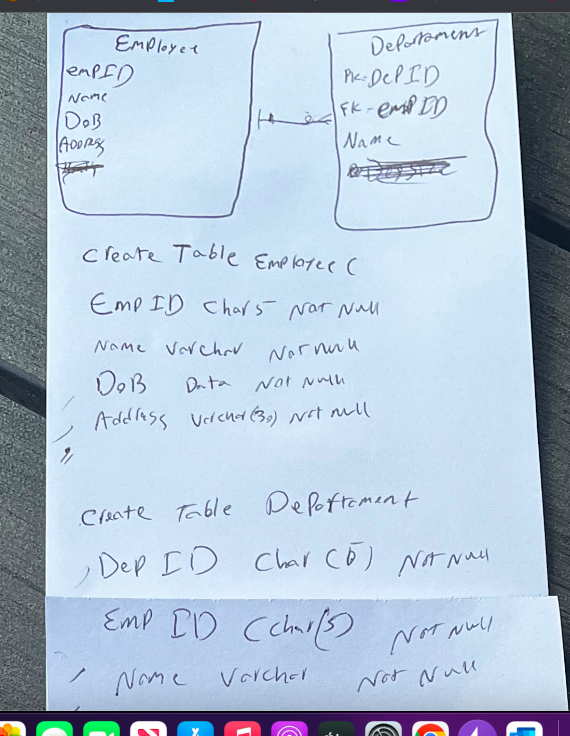 Employee
empID
Name
DoB
Address
Department
PK-DepID
FK-empID
Name
Create Table Employee (
Emp ID Char 5 Not Null
Name Varchar Not null
, DoB Data Not Null
, Address Varchar(30) Not null
Create Table Department
, Dep ID Char (5) Not Null
Emp ID (char(5) Not Null
, Name Varchar Not Null